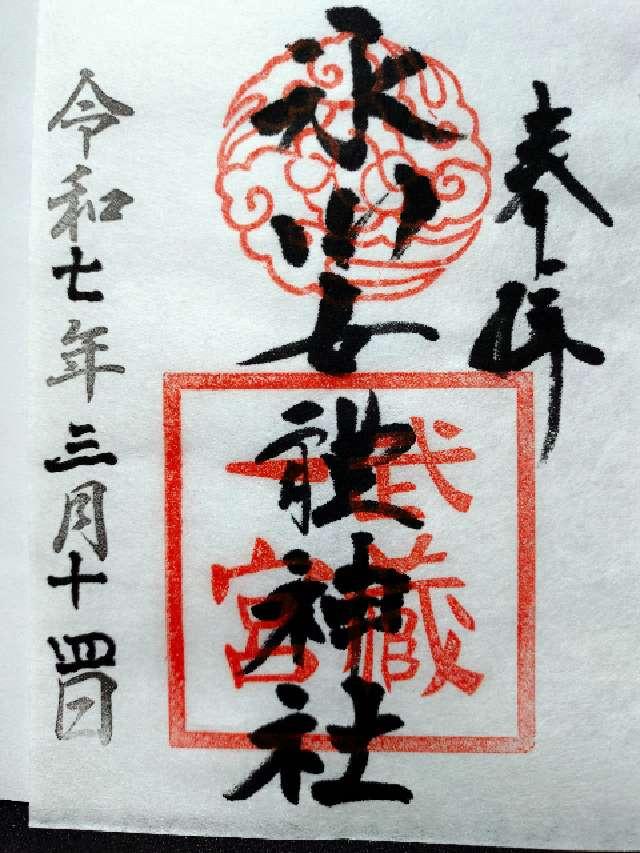 奉拝
氷川女體神社
武藏
一宮
令和七年三月十四日